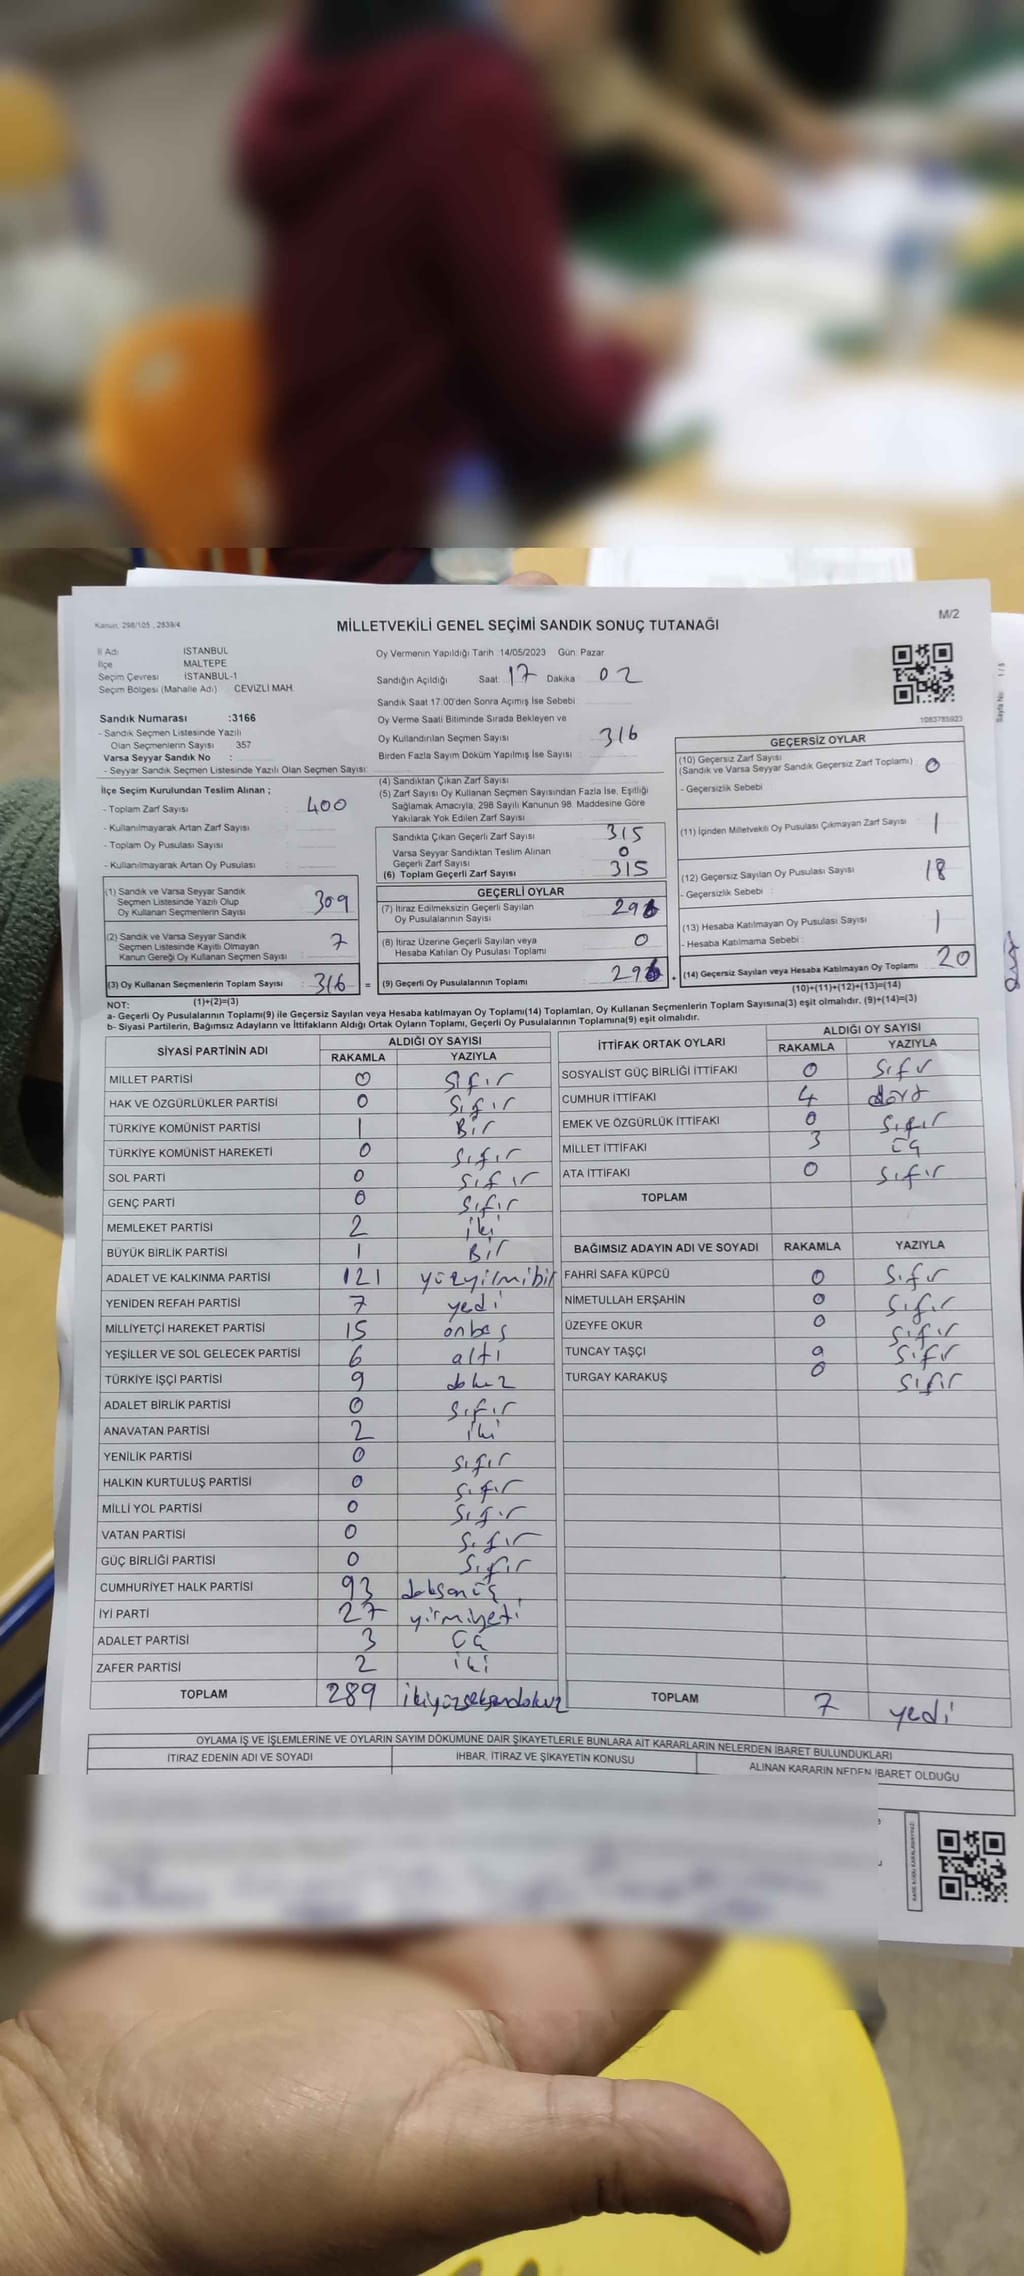 Kanun. 298/105 , 2839/4
MİLLETVEKİLİ GENEL SEÇİMİ SANDIK SONUÇ TUTANAĞI
M/2
İl Adı İSTANBUL
İlçe MALTEPE
Seçim Çevresi İSTANBUL-1
Seçim Bölgesi (Mahalle Adı) CEVİZLİ MAH.
Oy Vermenin Yapıldığı Tarih :14/05/2023 Gün: Pazar
Sandığın Açıldığı Saat: 17 Dakika 02
Sandık Saat 17:00'den Sonra Açımış İse Sebebi
Oy Verme Saati Bitiminde Sırada Bekleyen ve
Oy Kullandırılan Seçmen Sayısı 316
Birden Fazla Sayım Döküm Yapılmış İse Sayısı :
1083785923
Sayfa No: 1 / 5
Sandık Numarası :3166
- Sandık Seçmen Listesinde Yazılı
Olan Seçmenlerin Sayısı 357
Varsa Seyyar Sandık No :
- Seyyar Sandık Seçmen Listesinde Yazılı Olan Seçmen Sayısı:
İlçe Seçim Kurulundan Teslim Alınan ;
- Toplam Zarf Sayısı : 400
- Kullanılmayarak Artan Zarf Sayısı :
- Toplam Oy Pusulası Sayısı :
- Kullanılmayarak Artan Oy Pusulası :
(1) Sandık ve Varsa Seyyar Sandık
Seçmen Listesinde Yazılı Olup
Oy Kullanan Seçmenlerin Sayısı : 309
(2) Sandık ve Varsa Seyyar Sandık
Seçmen Listesinde Kayıtlı Olmayan
Kanun Gereği Oy Kullanan Seçmen Sayısı : 7
(3) Oy Kullanan Seçmenlerin Toplam Sayısı : 316 =
(1)+(2)=(3)
(4) Sandıktan Çıkan Zarf Sayısı
(5) Zarf Sayısı Oy Kullanan Seçmen Sayısından Fazla İse, Eşitliği
Sağlamak Amacıyla, 298 Sayılı Kanunun 98. Maddesine Göre
Yakılarak Yok Edilen Zarf Sayısı :
Sandıkta Çıkan Geçerli Zarf Sayısı : 315
Varsa Seyyar Sandıktan Teslim Alınan
Geçerli Zarf Sayısı : 0
(6) Toplam Geçerli Zarf Sayısı : 315
GEÇERLİ OYLAR
(7) İtiraz Edilmeksizin Geçerli Sayılan
Oy Pusulalarının Sayısı : 296
(8) İtiraz Üzerine Geçerli Sayılan veya
Hesaba Katılan Oy Pusulası Toplamı : 0
(9) Geçerli Oy Pusulalarının Toplamı : 296 +
GEÇERSİZ OYLAR
(10) Geçersiz Zarf Sayısı
(Sandık ve Varsa Seyyar Sandık Geçersiz Zarf Toplamı) : 0
- Geçersizlik Sebebi :
(11) İçinden Milletvekili Oy Pusulası Çıkmayan Zarf Sayısı : 1
(12) Geçersiz Sayılan Oy Pusulası Sayısı : 18
- Geçersizlik Sebebi :
(13) Hesaba Katılmayan Oy Pusulası Sayısı : 1
- Hesaba Katılmama Sebebi :
(14) Geçersiz Sayılan veya Hesaba Katılmayan Oy Toplamı : 20
(10)+(11)+(12)+(13)=(14)
NOT:
a- Geçerli Oy Pusulalarının Toplamı(9) ile Geçersiz Sayılan veya Hesaba katılmayan Oy Toplamı(14) Toplamları, Oy Kullanan Seçmenlerin Toplam Sayısına(3) eşit olmalıdır. (9)+(14)=(3)
b- Siyasi Partilerin, Bağımsız Adayların ve İttifakların Aldığı Ortak Oyların Toplamı, Geçerli Oy Pusulalarının Toplamına(9) eşit olmalıdır.
SİYASİ PARTİNİN ADI ALDIĞI OY SAYISI
RAKAMLA YAZIYLA
MİLLET PARTİSİ 0 Sıfır
HAK VE ÖZGÜRLÜKLER PARTİSİ 0 Sıfır
TÜRKİYE KOMÜNİST PARTİSİ 1 Bir
TÜRKİYE KOMÜNİST HAREKETİ 0 Sıfır
SOL PARTİ 0 Sıfır
GENÇ PARTİ 0 Sıfır
MEMLEKET PARTİSİ 2 iki
BÜYÜK BİRLİK PARTİSİ 1 Bir
ADALET VE KALKINMA PARTİSİ 121 yüzyirmibir
YENİDEN REFAH PARTİSİ 7 yedi
MİLLİYETÇİ HAREKET PARTİSİ 15 onbeş
YEŞİLLER VE SOL GELECEK PARTİSİ 6 altı
TÜRKİYE İŞÇİ PARTİSİ 9 dokuz
ADALET BİRLİK PARTİSİ 0 Sıfır
ANAVATAN PARTİSİ 2 iki
YENİLİK PARTİSİ 0 Sıfır
HALKIN KURTULUŞ PARTİSİ 0 Sıfır
MİLLİ YOL PARTİSİ 0 Sıfır
VATAN PARTİSİ 0 Sıfır
GÜÇ BİRLİĞİ PARTİSİ 0 Sıfır
CUMHURİYET HALK PARTİSİ 93 doksanüç
İYİ PARTİ 27 yirmiyeti
ADALET PARTİSİ 3 üç
ZAFER PARTİSİ 2 iki
TOPLAM 289 ikiyüzseksendokuz
İTTİFAK ORTAK OYLARI ALDIĞI OY SAYISI
RAKAMLA YAZIYLA
SOSYALİST GÜÇ BİRLİĞİ İTTİFAKI 0 Sıfır
CUMHUR İTTİFAKI 4 dört
EMEK VE ÖZGÜRLÜK İTTİFAKI 0 Sıfır
MİLLET İTTİFAKI 3 üç
ATA İTTİFAKI 0 Sıfır
TOPLAM
BAĞIMSIZ ADAYIN ADI VE SOYADI RAKAMLA YAZIYLA
FAHRİ SAFA KÜPCÜ 0 Sıfır
NİMETULLAH ERŞAHİN 0 Sıfır
ÜZEYFE OKUR 0 Sıfır
TUNCAY TAŞÇI 0 Sıfır
TURGAY KARAKUŞ 0 Sıfır
TOPLAM 7 yedi
OYLAMA İŞ VE İŞLEMLERİNE VE OYLARIN SAYIM DÖKÜMÜNE DAİR ŞİKAYETLERLE BUNLARA AİT KARARLARIN NELERDEN İBARET BULUNDUKLARI
İTİRAZ EDENİN ADI VE SOYADI İHBAR, İTİRAZ VE ŞİKAYETİN KONUSU ALINAN KARARIN NEDEN İBARET OLDUĞU